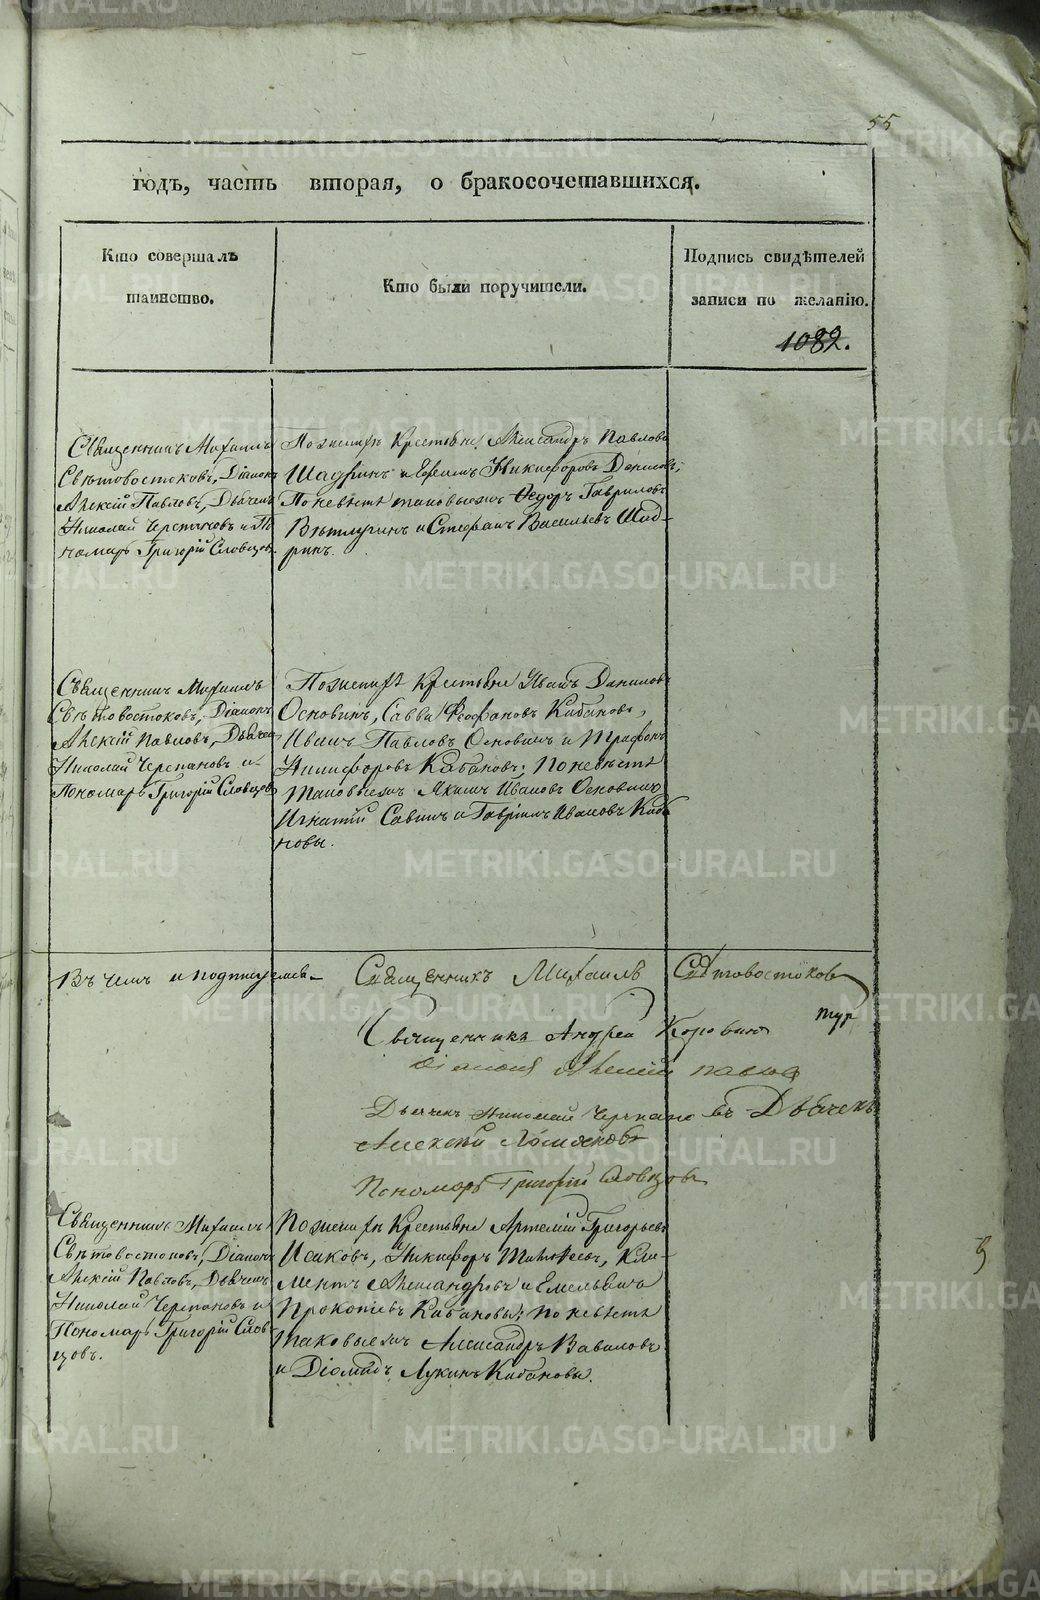 55
годъ, часть вторая, о бракосочетавшихся.
Кто совершалъ
таинство.
Кто были поручители.
Подпись свидѣтелей
записи по желанію.
1082.
Священникъ Михаилъ
Свѣтовостоковъ, Діаконъ
Алексій Павловъ, Дьячекъ
Николай Черепановъ и По
номарь Григорій Словцовъ
По женихѣ Крестьяне: Александръ Павловъ
Шадринъ и Ефимъ Никифоровъ Денисовъ;
По невѣстѣ таковыежъ Ѳедоръ Гавриловъ
Вѣтлугинъ и Стефанъ Васильевъ Шад-
ринъ.
Священникъ Михаилъ
Свѣтовостоковъ, Діаконъ
Алексій Павловъ, Дьячекъ
Николай Черепановъ и
Пономарь Григорій Словцовъ
По женихѣ Крестьяне Иванъ Даниловъ
Основинъ, Савва Ѳеофановъ Кабановъ,
Иванъ Павловъ Основинъ и Трифонъ
Никифоровъ Кабановъ; По невѣстѣ
таковыежъ Якимъ Ивановъ Основинъ
Игнатій Савинъ и Гавріилъ Ивановъ Каба
новы.
Въ чемъ и подписуемся
Священникъ Михаилъ Свѣтовостоковъ
Священникъ Андрей Коровинъ
Діаконъ Алексій Павловъ
Дьячекъ Николай Черепановъ Дьячекъ
Алексѣй
Пономарь Григорій Словцовъ
Священникъ Михаилъ
Свѣтовостоковъ, Діаконъ
Алексій Павловъ, Дьячекъ
Николай Черепановъ и
Пономарь Григорій Слов-
цовъ.
По женихѣ Крестьяне Артемій Григорьевъ
Исаковъ, Никифоръ Тимоѳеевъ, Кли-
ментъ Александровъ и Емельянъ
Прокопіевъ Кабановы; по невѣстѣ
таковыежъ Александръ Вавиловъ
и Діомидъ Лукинъ Кабановы.
METRIKI.GASO-URAL.RU